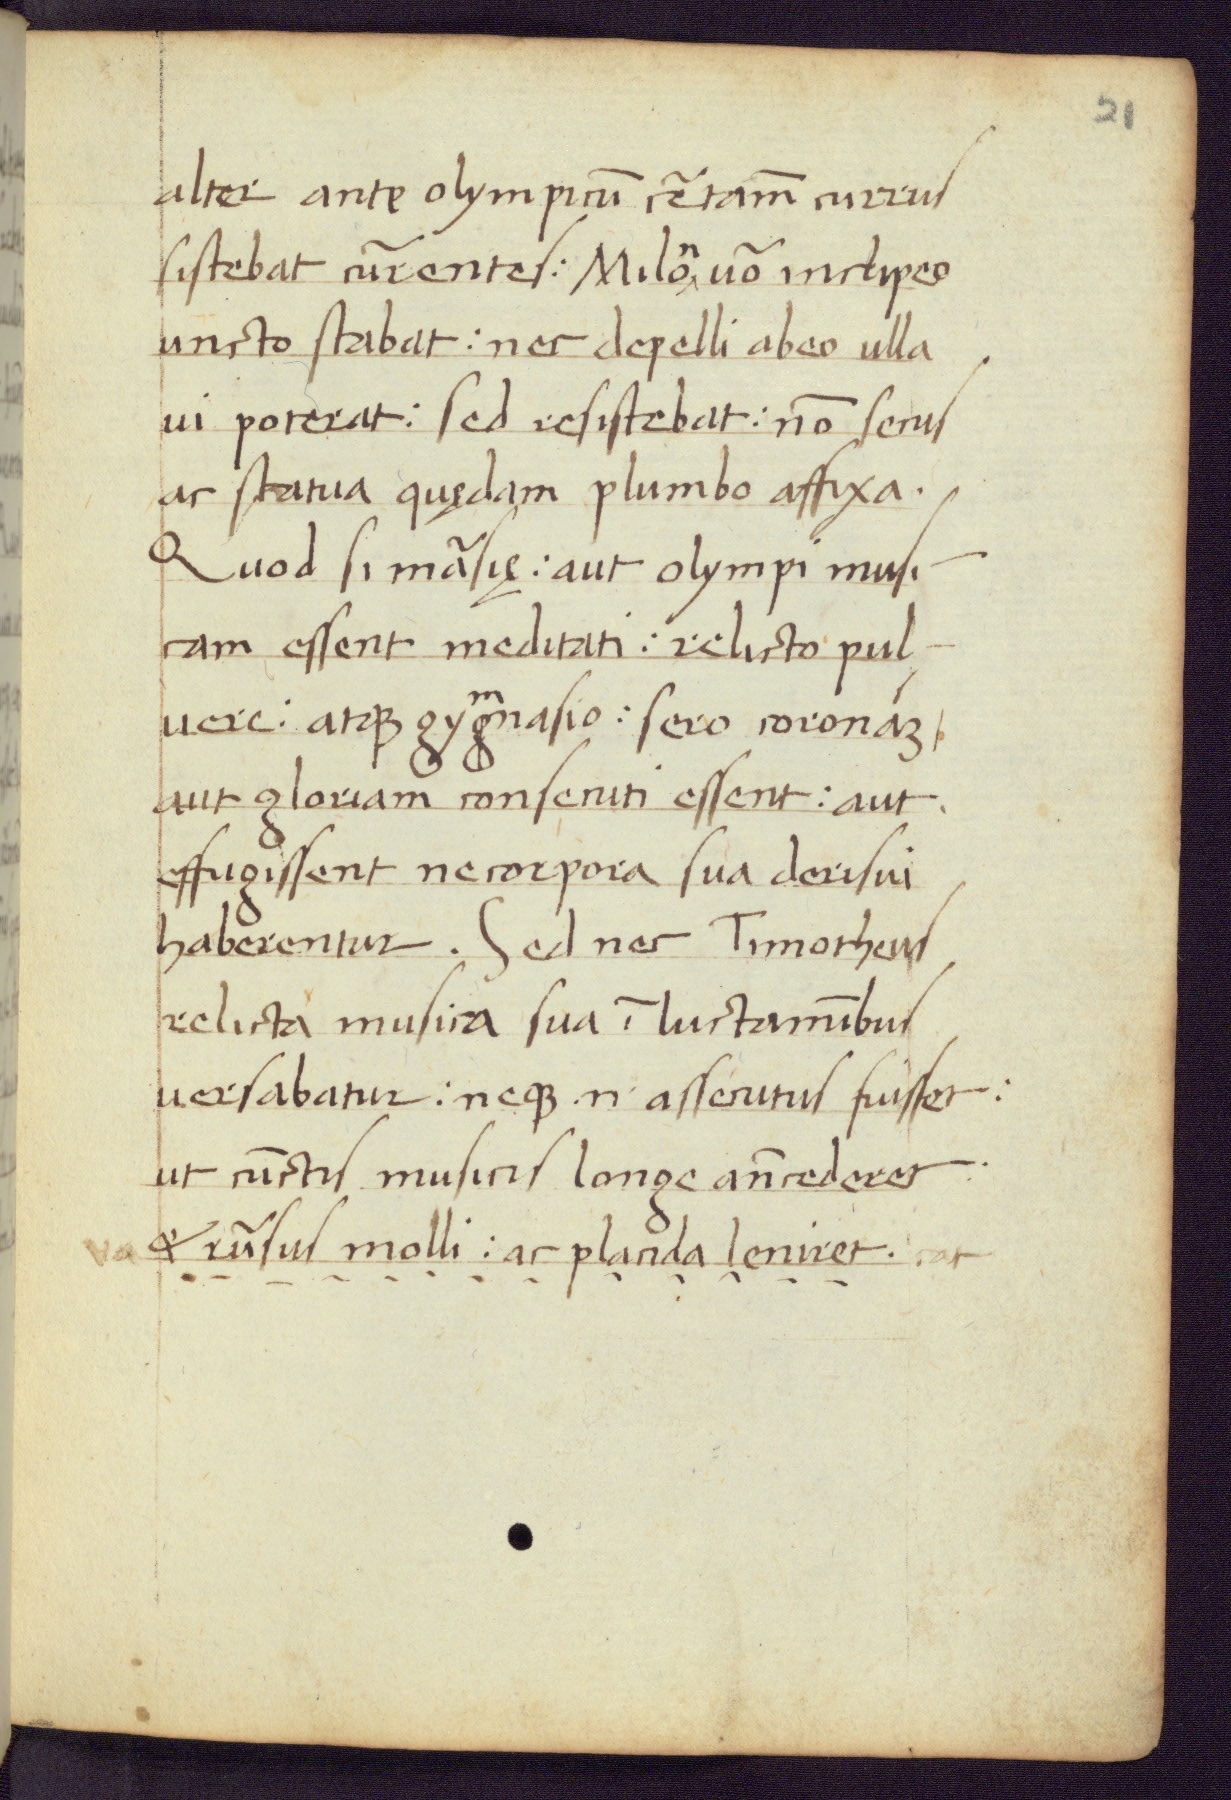 21
alter antę olympicũ cẽtam̃ currus
sistebat cũrentes: Milõn uõ inclipeo
uncto stabat: nec depelli abeo ulla
ui poterat: sed resistebat: nõ secus
ac statua quędam plumbo affixa.
Quod si mãsię: aut olympi musi-
cam essent meditati: relicto pul-
uere: atqꝫ gygmnasio: sero coronáꝫ
aut gloriam̃ consecuti essent: aut
effugissent necorpora sua derisui
haberentur. Sed nec Timotheus
relicta musica sua ĩ luctamĩbus
uersabatur: neqꝫ .n. assecutus fuisset:
ut cũctis musicis longe añcederet.
& rũsus molli: ac placida leniret.